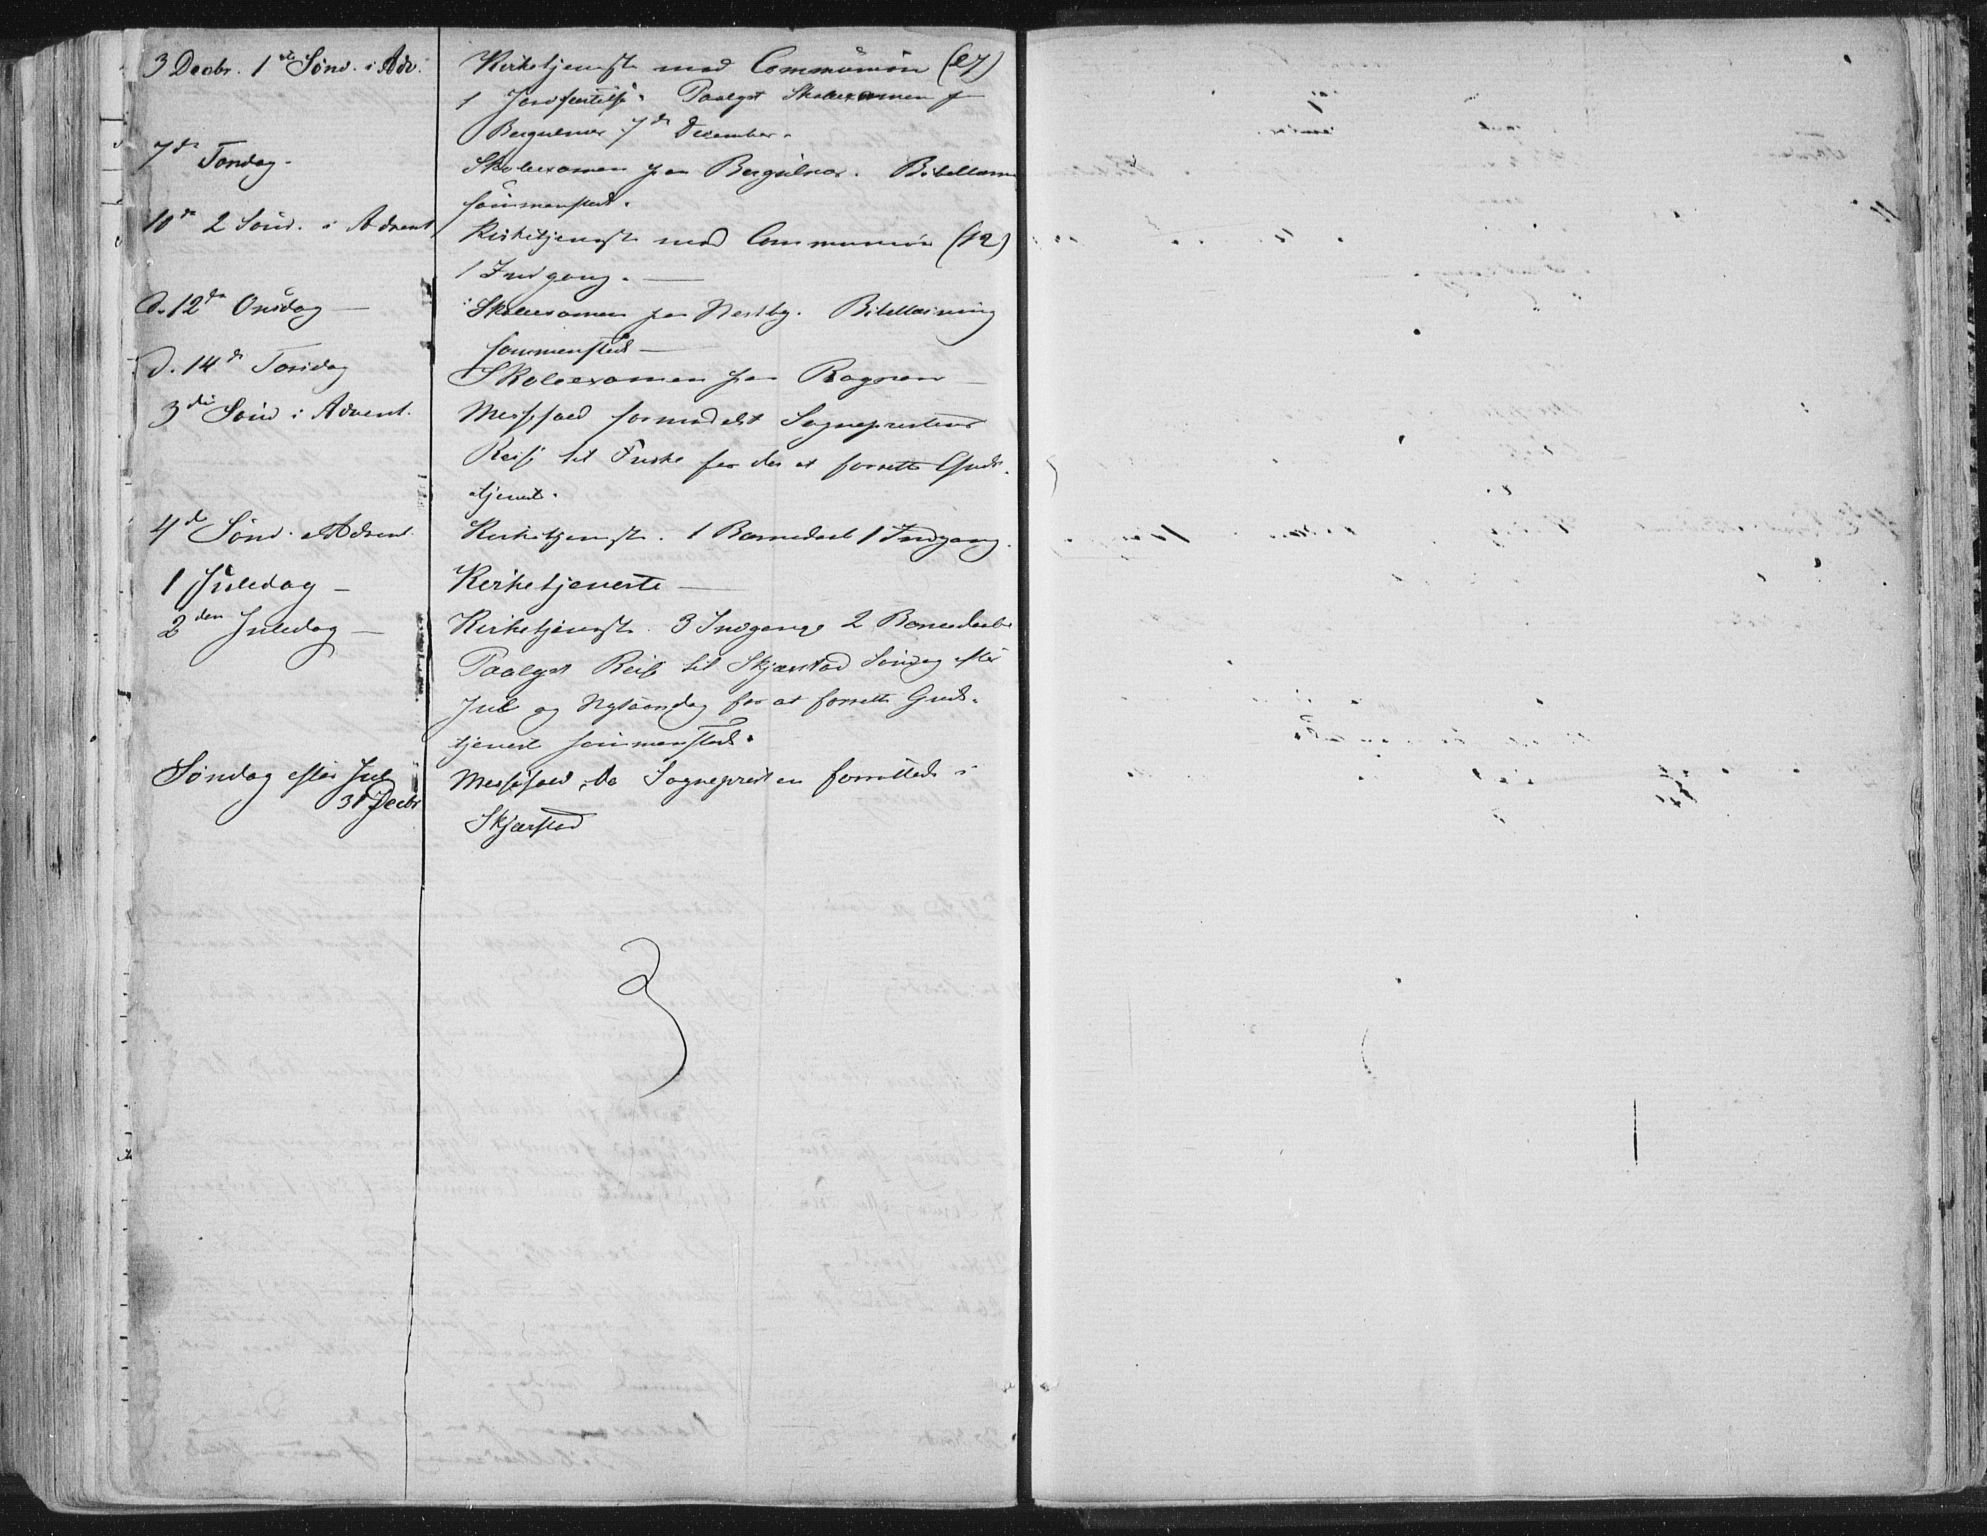 3 Decbr. 1ste Sønd. i Adv. Kirketjeneste med Communion (27)
1 Jordfæstelse. Paalyst Skoleexamen p
7de December.
7de Torsdag. Skoleexamen paa Bibellæsn
sammensteds.
10de 2 Sønd. i Advent Kirketjeneste med Communion (12)
1 Indgang. —
d. 12te Onsdag — Skoleexamen paa Nestby. Bibellæsning
sammensteds —
d. 14de Torsdag Skoleexamen paa Rognan —
3die Sønd i Advent. Messefald formedelst Sognepræstens
Reise til Fuske for der at forrette Guds-
tjeneste.
4de Sønd. i Advent Kirketjeneste. 1 Barnedaab 1 Indgang.
1 Juledag — Kirketjeneste —
2den Juledag — Kirketjeneste. 3 Indgange 2 Barnedaab
Paalyst Reise til Skjærstad Søndag efter
Jul og Nytaarsdag for at forrette Guds-
tjeneste sammensteds.
Søndag efter Jul Messefald, da Sognepresten forrettede i
31 Decbr
Skjærstad